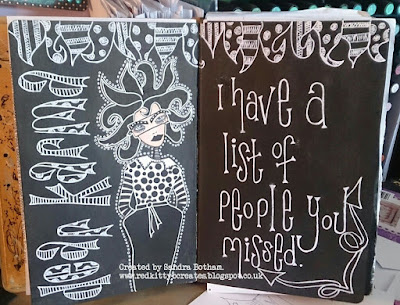 Dear Karma
I have a
list of
people you
missed.
Created by Sandra Botham.
www.redkittybcreates.blogspot.co.uk